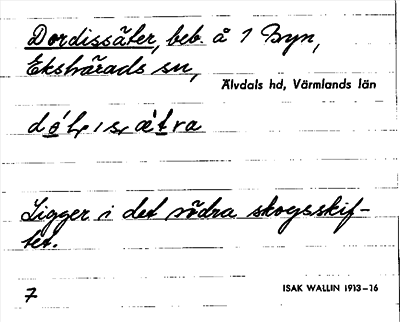 Dordissäter, beb. å 1 Byn,
Ekshärads sn,
Älvdals hd, Värmlands län
Ligger i det södra skogsskif-
tet.
7
ISAK WALLIN 1913-16